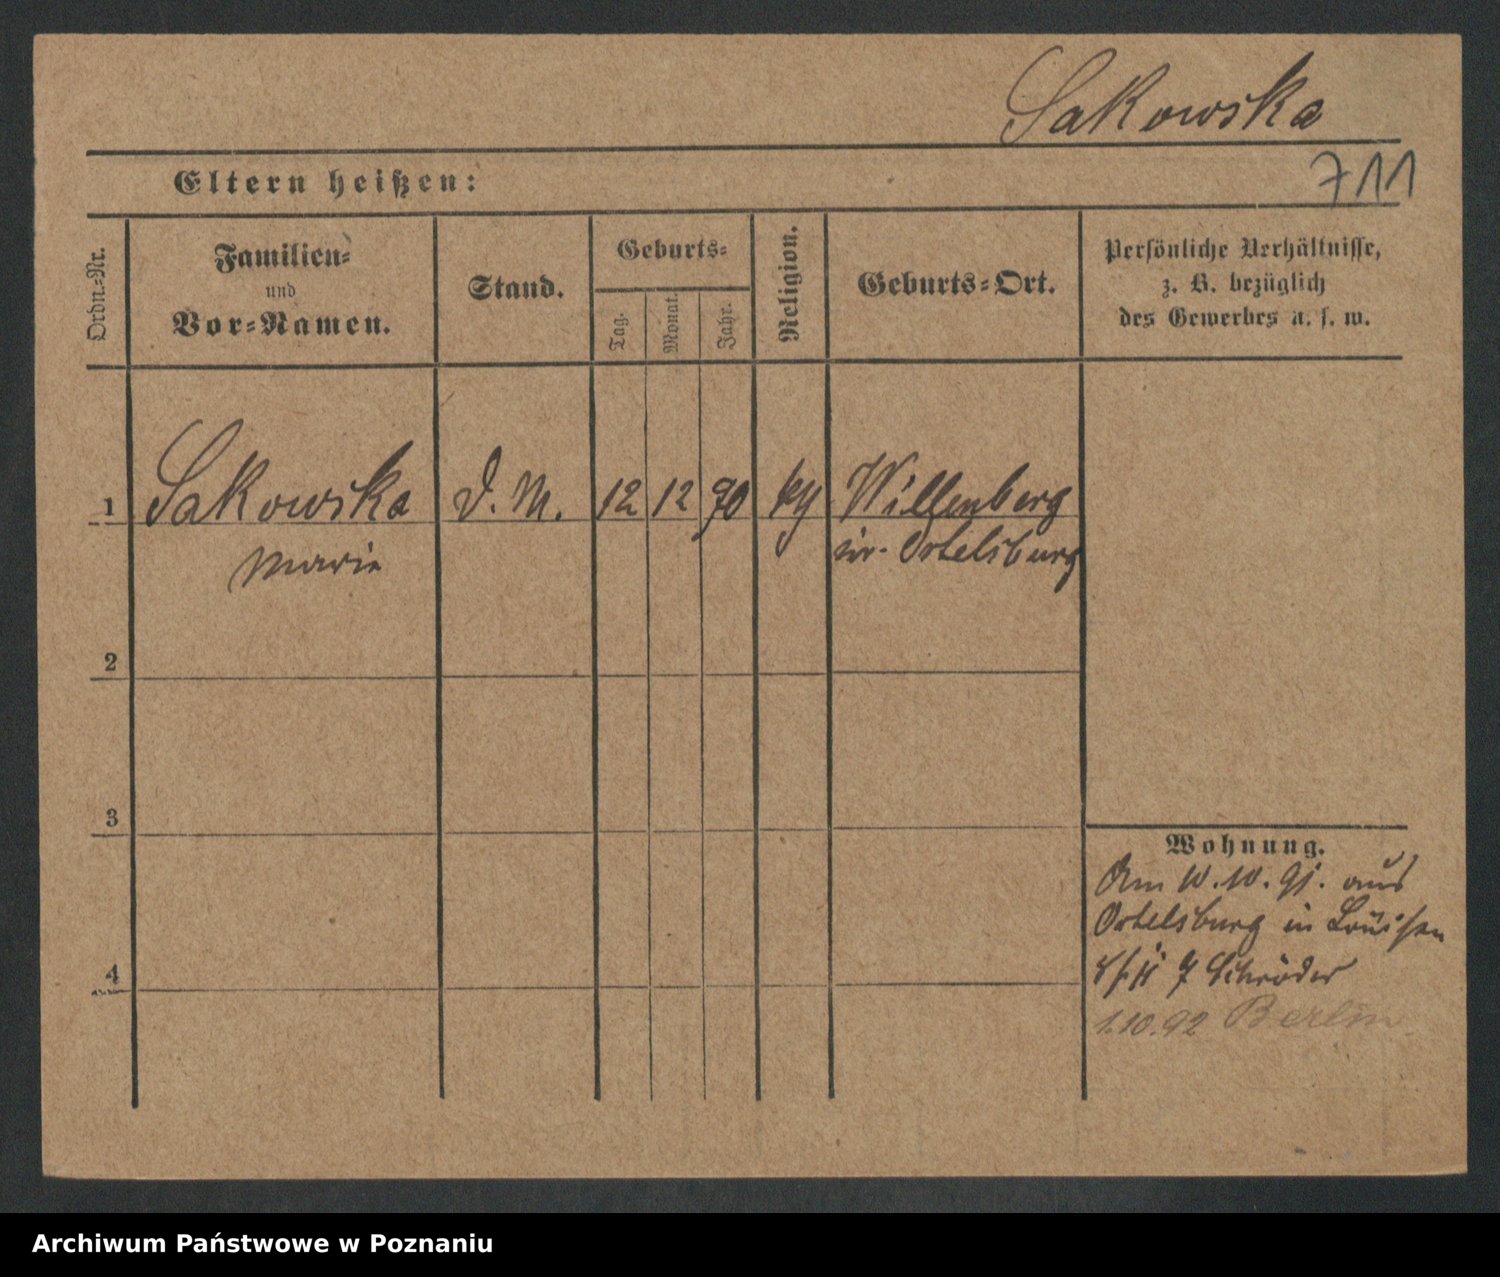 Sakowska
711
Eltern heißen:
Ordn.-Nr.
Familien-
und
Vor-Namen.
Stand.
Geburts-
Tag.
Monat.
Jahr.
Religion.
Geburts-Ort.
Persönliche Verhältnisse,
z. B. bezüglich
des Gewerbes u. s. w.
1 Sakowska D. M. 12 12 70 Willenberg
Marie Ortelsburg
2
3
4
Wohnung.
Am 10.10.91. aus
Ortelsburg in
Schröder
1.10.92 Berlin
Archiwum Państwowe w Poznaniu